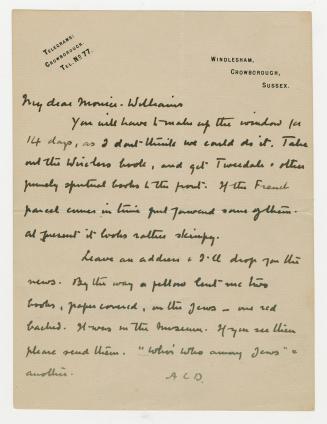 TELEGRAMS:
CROWBOROUGH.
TEL. No 77.
WINDLESHAM,
CROWBOROUGH,
SUSSEX.
My dear Monier-Williams
You will have to make up the window for
14 days, as I don't think we could do it. Take
out the Wireless book, and get Tweedale & other
purely spiritual books to the front. If the French
parcel comes in time put forward some of them.
At present it looks rather skimpy.
Leave an address & I'll drop you the
news. By the way a fellow lent me two
books, paper covered, on the Jews - one red
backed. It was in the Museum. If you see them
please send them. "Who's Who among Jews" &
another.
A C D.